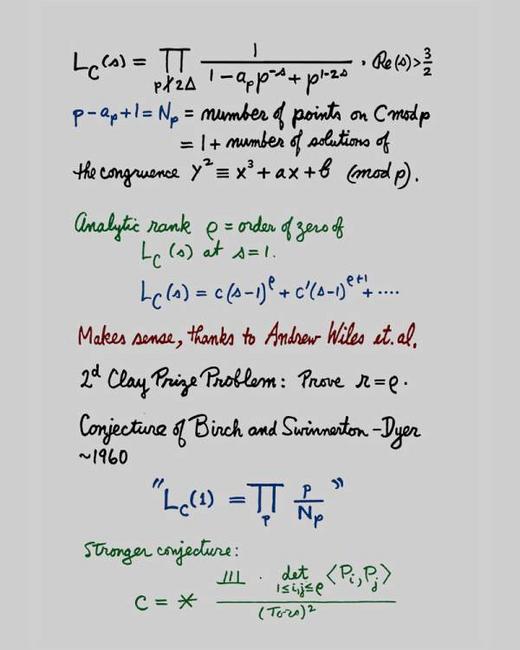 L_C(s) = ∏_{p∤2Δ} 1/(1 - a_p p^{-s} + p^{1-2s}) , Re(s) > 3/2
p - a_p + 1 = N_p = number of points on C mod p
= 1 + number of solutions of
the congruence y² ≡ x³ + ax + b (mod p).
Analytic rank ρ = order of zero of
L_C(s) at s = 1.
L_C(s) = c(s-1)^ρ + c'(s-1)^{ρ+1} + ....
Makes sense, thanks to Andrew Wiles et. al.
2ᵈ Clay Prize Problem: Prove r = ρ.
Conjecture of Birch and Swinnerton-Dyer
~1960
"L_C(1) = ∏_p p/N_p"
Stronger conjecture:
C = * Ш · det_{1≤i,j≤ρ} ⟨P_i, P_j⟩ / (Tors)²